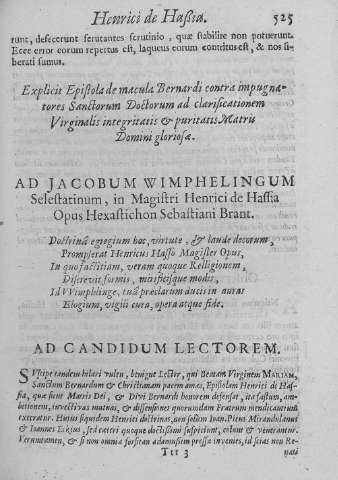 Henrici de Hassia. 525
runt, defecerunt scrutantes scrutinio, quæ stabilire non potuerunt.
Ecce error eorum repertus est, laqueus eorum contritus est, & nos li-
berati sumus.
Explicit Epistola de macula Bernardi contra impugna-
tores Sanctorum Doctorum ad clarificationem
Virginalis integritatis & puritatis Matris
Domini gloriosæ.
AD JACOBUM WIMPHELINGUM
Selestatinum, in Magistri Henrici de Hassia
Opus Hexastichon Sebastiani Brant.
Doctrinâ egregium hoc, virtute, & laude decorum,
Prompserat Henricus Hasso Magister Opus,
In quo factitiam, veram quoque Relligionem,
Discrevit formis, mirificisque modis,
Id Wimphlinge, tua præclarum ducis in auras
Elogium, vigili cura, opera atque fide.
AD CANDIDUM LECTOREM.
SUscipe tandem hilari vultu, benigne Lector, qui Beatam Virginem MARIAM,
Sanctum Bernardum & Christianam pacem amas, Epistolam Henrici de Has-
sia, quæ sicut Matris Dei, & Divi Bernardi honorem defensat, ita fastum, am-
bitionem, invectivas mutuas, & dissensiones quorundam Fratrum mendicantium
execratur. Hujus siquidem Henrici doctrinas, non solum Ioan. Picus Mirandulanus
& Ioannes Eckius, sed cæteri quoque doctissimi suspiciunt, colunt & venerantur.
Veruntamen, & si non omnia forsitan adamussim pressa invenies, id scias non Re-
Ttt 3 nati